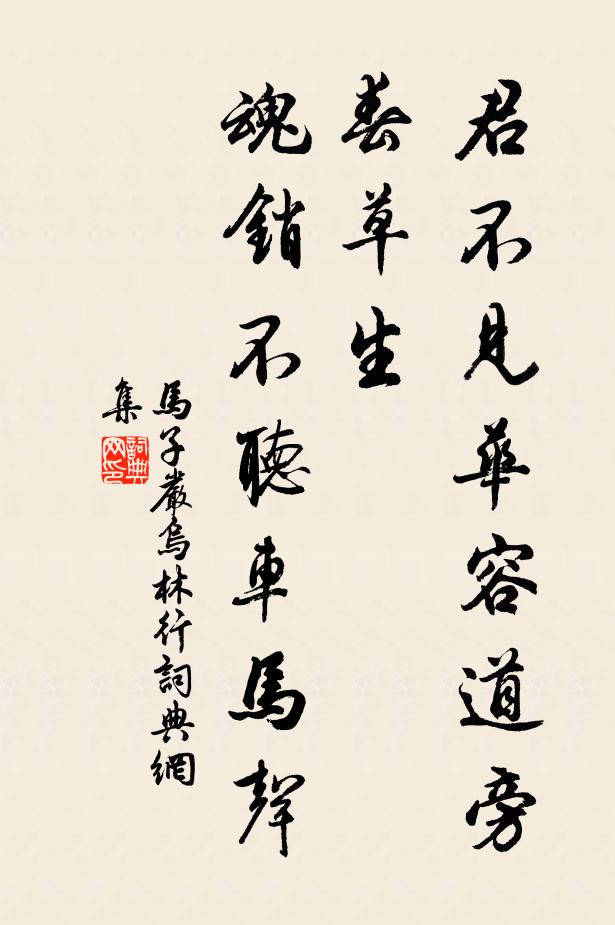 君不見華容道旁
春草生
魂銷不聽車馬聲
馬子嚴烏林行詞典網
集
詞典网印